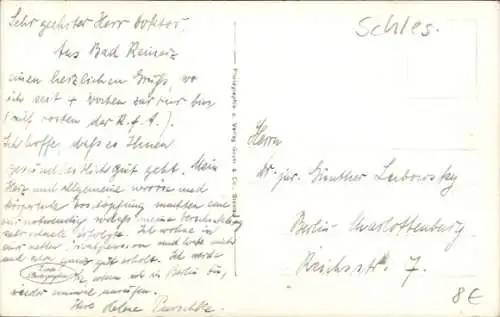 Sehr geehrter Herr Doktor.
Aus Bad Reinerz
einen herzlichen Gruß, wo
ich seit 4 Wochen zur Kur bin
(auf Kosten der R. f. A.).
Ich hoffe, daß es Ihnen
gesundheitlich gut geht. Mein
Herz und allgemeine nervöse und
körperliche Erschöpfung machten eine
notwendig meine Verschickung
schnell erfolgte. Ich wohne in
einer netten und habe mich
ganz gut erholt. Ich werde
wenn ich in Berlin bin,
wieder einmal anrufen.
Ihre Helene
Photographie u. Verlag & Co.,
Schles.
Herrn
Dr. jur. Günther Lubowsky
Berlin-Charlottenburg
Reichsstr. 7.
8€